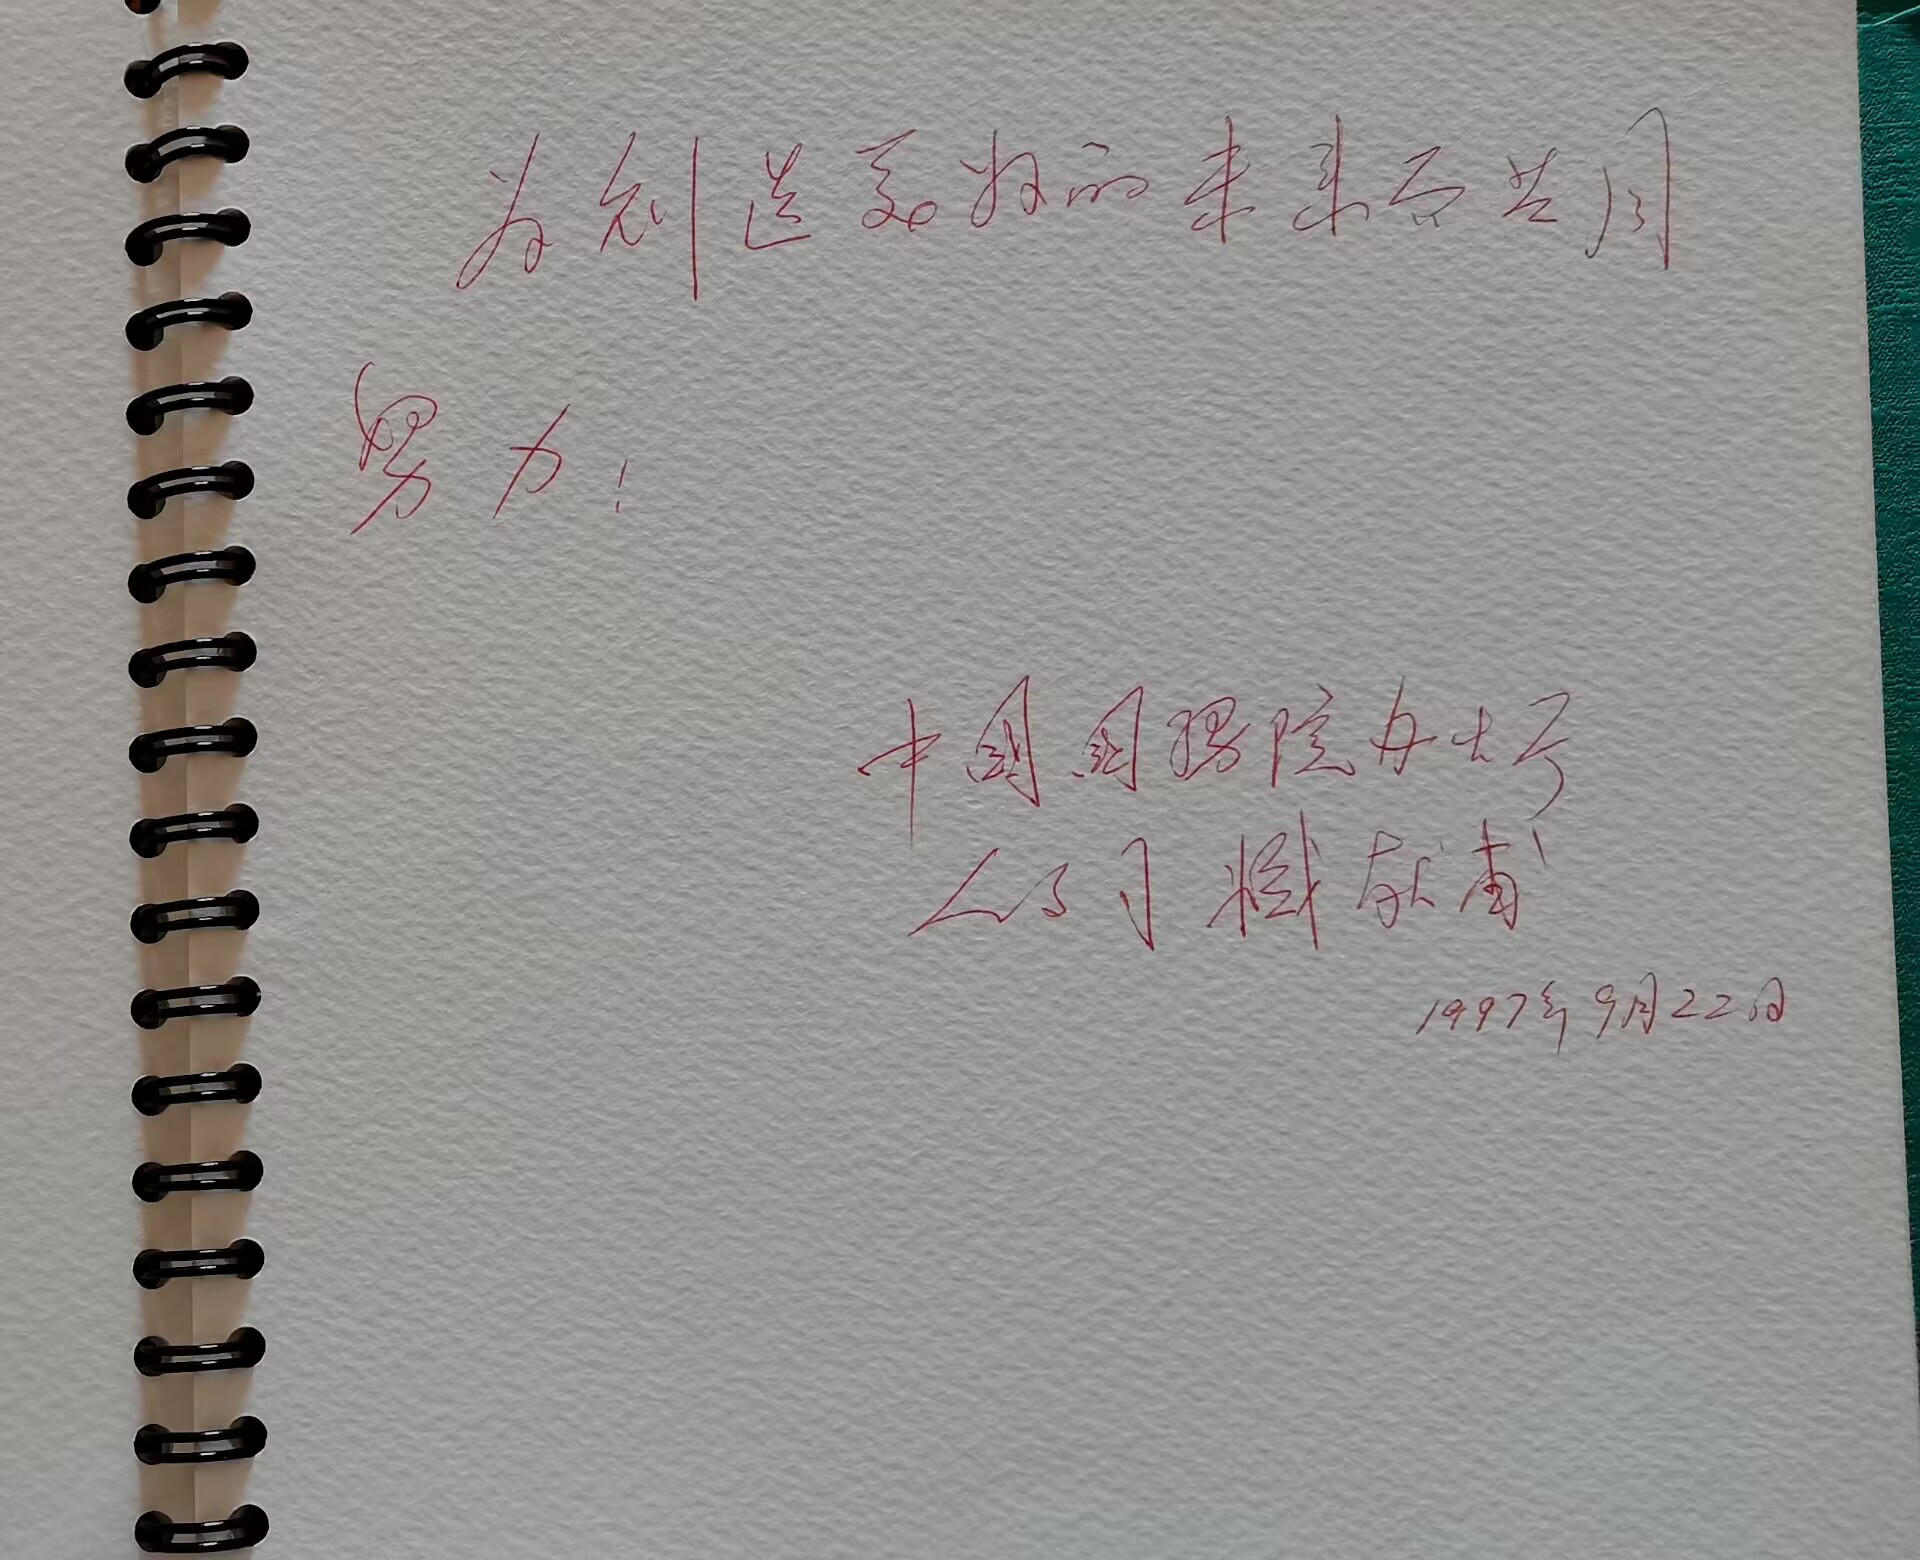 为创造美好的未来而共同
努力!
中国国務院办公厅
人事司 臧献甫
1997年9月22日